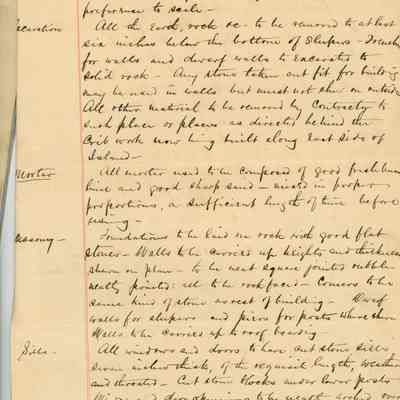 preference to scale -
Excavation All the Earth, rock &c. to be removed to at least
six inches below the bottom of Sleepers - Trenches
for walls and dwarf walls to Excavated to
solid rock - Any stone taken out fit for building
may be used in walls but must not shew on outside
All other material to be removed by Contractor to
such place or places as directed behind the
Crib work now being built along East Side of
Island -
Mortar All mortar used to be composed of good fresh burnt
lime and good sharp sand - mixed in proper
proportions, a sufficient length of time before
using -
Masonry - Foundations to be laid on rock with good flat
stones - Walls to be carried up heights and thickness
shewn on plan - to be neat square jointed rubble
neatly pointed: all to be rock faced - Corners to be
same kind of stone as rest of building - Dwarf
walls for sleepers and piers for posts where shewn
Walls to be carried up to roof boarding -
Sills - All windows and doors to have cut stone sills
seven inches thick, of the required length, weathered
and throated - Cut stone blocks under lower posts